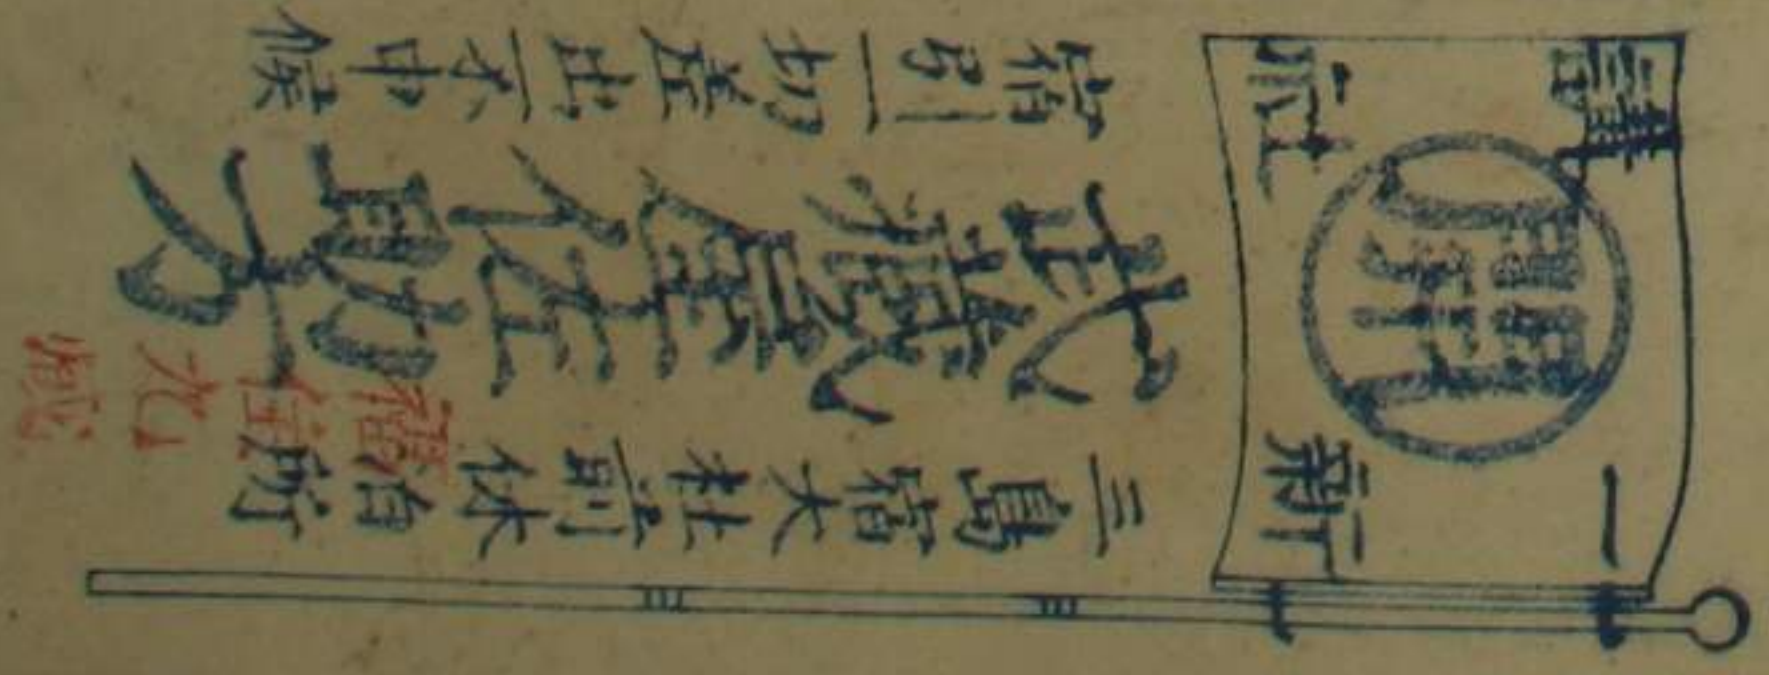 一新
講社
三島宿大社前休泊所
武藏屋佐助方
宿引一切差出不申候
福住九